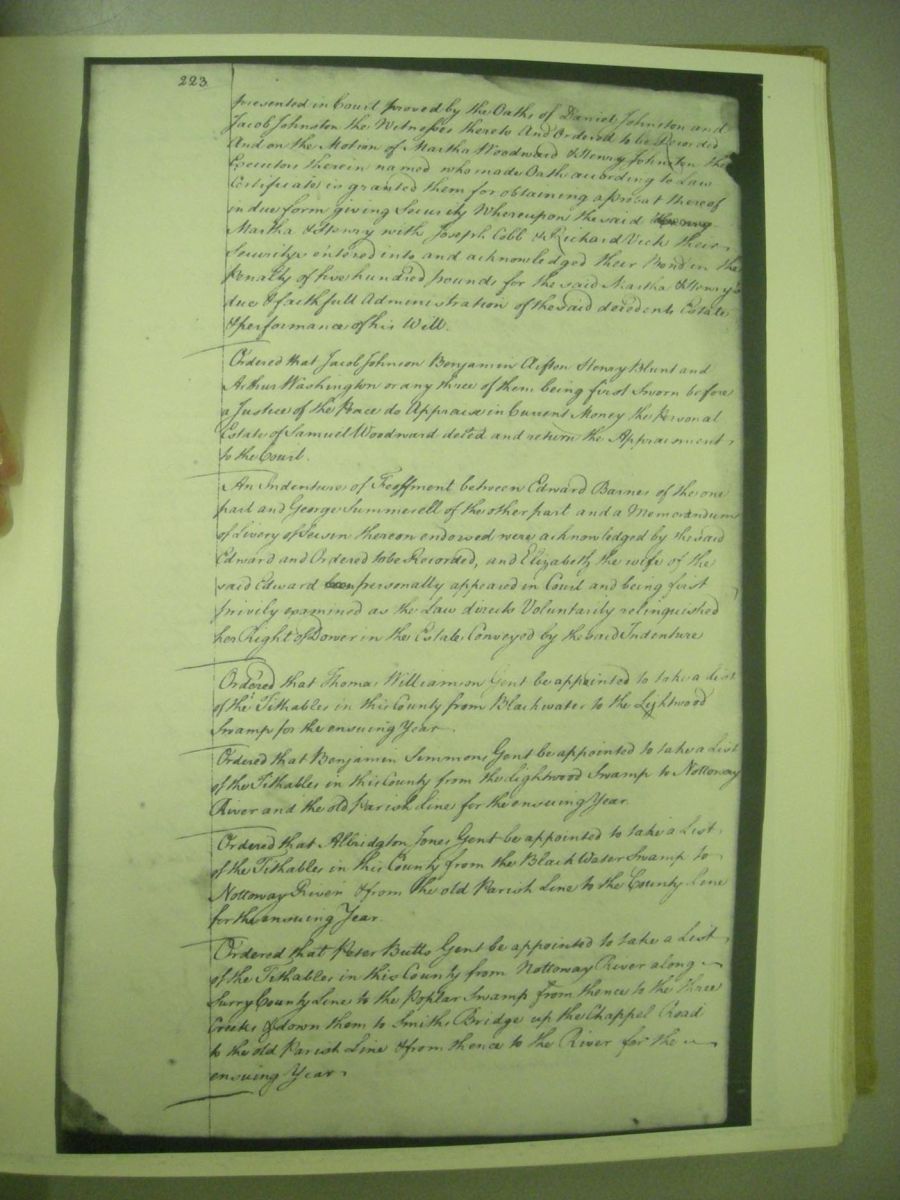 223
presented in Court proved by the Oaths of Daniel Johnston and
Jacob Johnston the Witnesses thereto And Ordered to be Recorded
And on the Motion of Martha Woodward & Henry Johnston the
Executors therein named who made Oath according to Law
Certificate is granted them for obtaining a probat thereof
in due form giving Security Whereupon the said
Martha & Henry with Joseph Cobb & Richard Vick their
Securitys entered into and acknowledged their Bond in the
Penalty of five hundred pounds for the said Martha & Henry's
due & faithfull Administration of the said decedents Estate
& performance of his Will.
Ordered that Jacob Johnson Benjamin Clifton Henry Blunt and
Arthur Washington or any three of them being first Sworn before
a Justice of the Peace do Appraise in Current Money the Personal
Estate of Samuel Woodward deced and return the Appraisment
to the Court.
An Indenture of Feoffment between Edward Barnes of the one
part and George Summerell of the other part and a Memorandum
of Livery of Seisin thereon endorsed were acknowledged by the said
Edward and Ordered to be Recorded, and Elizabeth the wife of the
said Edward personally appeared in Court and being first
privily examined as the Law directs Voluntarily relinquished
her Right of Dower in the Estate Conveyed by the said Indenture
Ordered that Thomas Williamson Gent be appointed to take a List
of the Tithables in this County from Blackwater to the Lightwood
Swamp for the ensuing Year
Ordered that Benjamin Simmons Gent be appointed to take a List
of the Tithables in this County from the Lightwood Swamp to Nottoway
River and the old Parish Line for the ensuing Year.
Ordered that Albridgton Jones Gent be appointed to take a List
of the Tithables in this County from the Black Water Swamp to
Nottoway River & from the old Parish Line to the County Line
for the ensuing Year.
Ordered that Peter Butts Gent be appointed to take a List
of the Tithables in this County from Nottoway River along
Surry County Line to the Poplar Swamp from thence to the three
Creeks & down them to Smiths Bridge up the Chappel Road
to the old Parish Line & from thence to the River for the
ensuing Year.